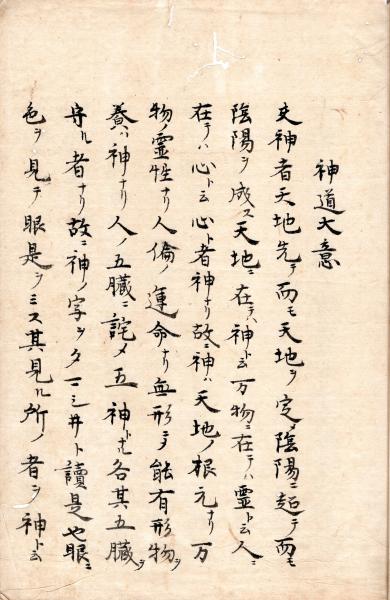 神道大意
夫神者天地先テ而モ天地ヲ定メ陰陽ニ超テ而モ
陰陽ヲ成ス天地ニ在テハ神ト云万物ニ在テハ霊ト云人ニ
在テハ心ト云心ト者神ナリ故ニ神ハ天地ノ根元ナリ万
物ノ霊性ナリ人倫ノ運命ナリ無形ニシテ能有形物ヲ
養ハ神ナリ人ノ五臓ニ詫メ五神トナル各其五臓ヲ
守ル者ナリ故ニ神ノ字ヲタマシ井ト讀是也眼ニ
色ヲ見テ眼是ヲミス其見ル所ノ者ヲ神ト云